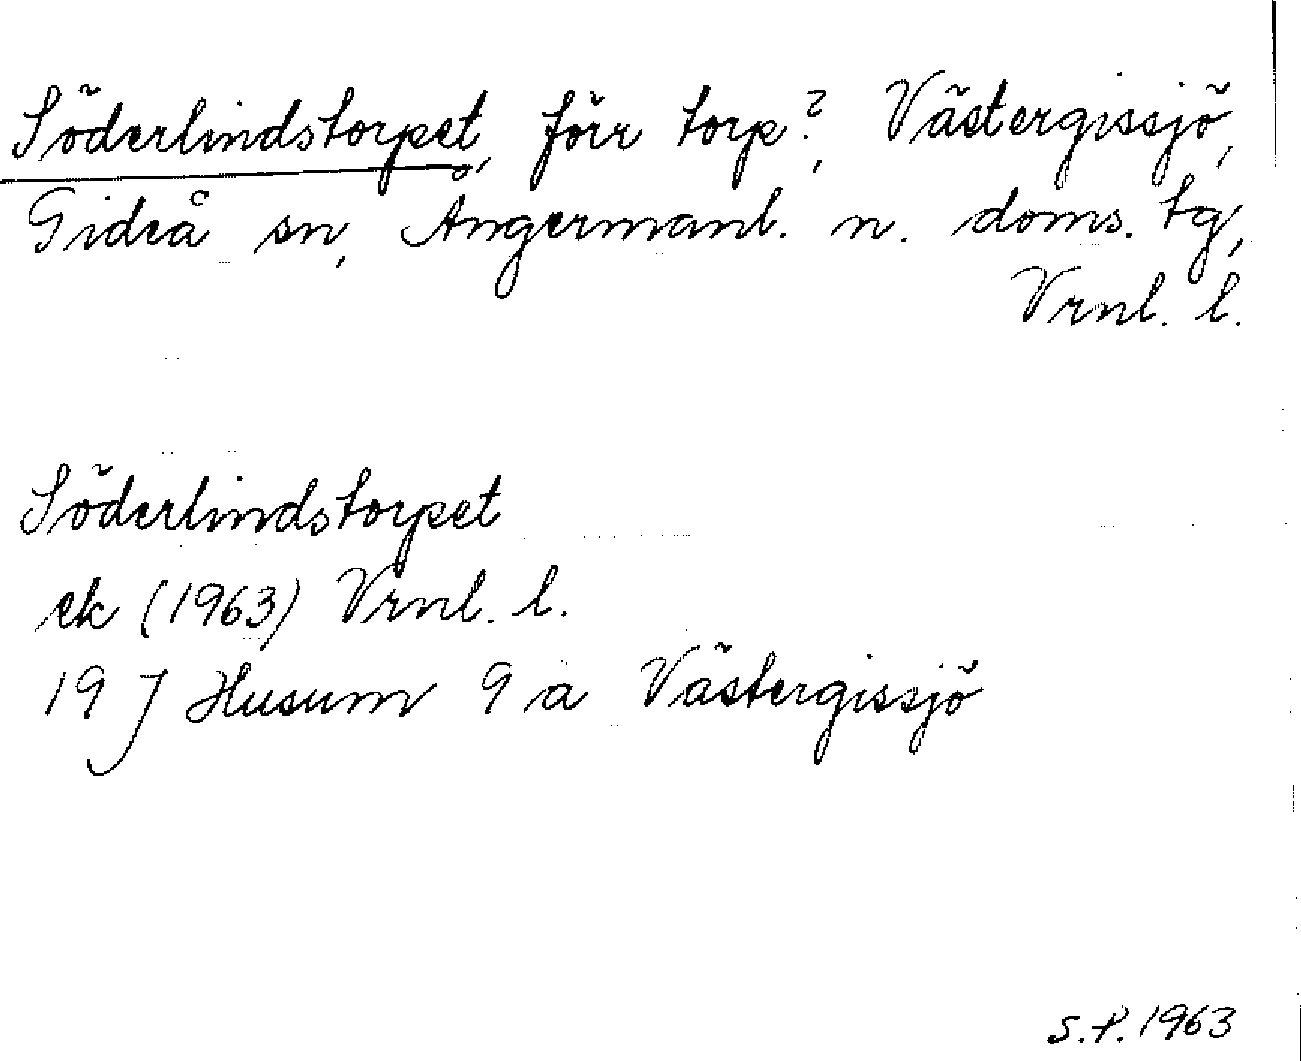 Söderlindstorpet, förr torp?, Västergissjö,
Gideå sn, Ångermanl. n. doms. tg,
Vrnl. l.
Söderlindstorpet
ek (1963) Vrnl. l.
19 J Husum 9 a Västergissjö
S.P. 1963